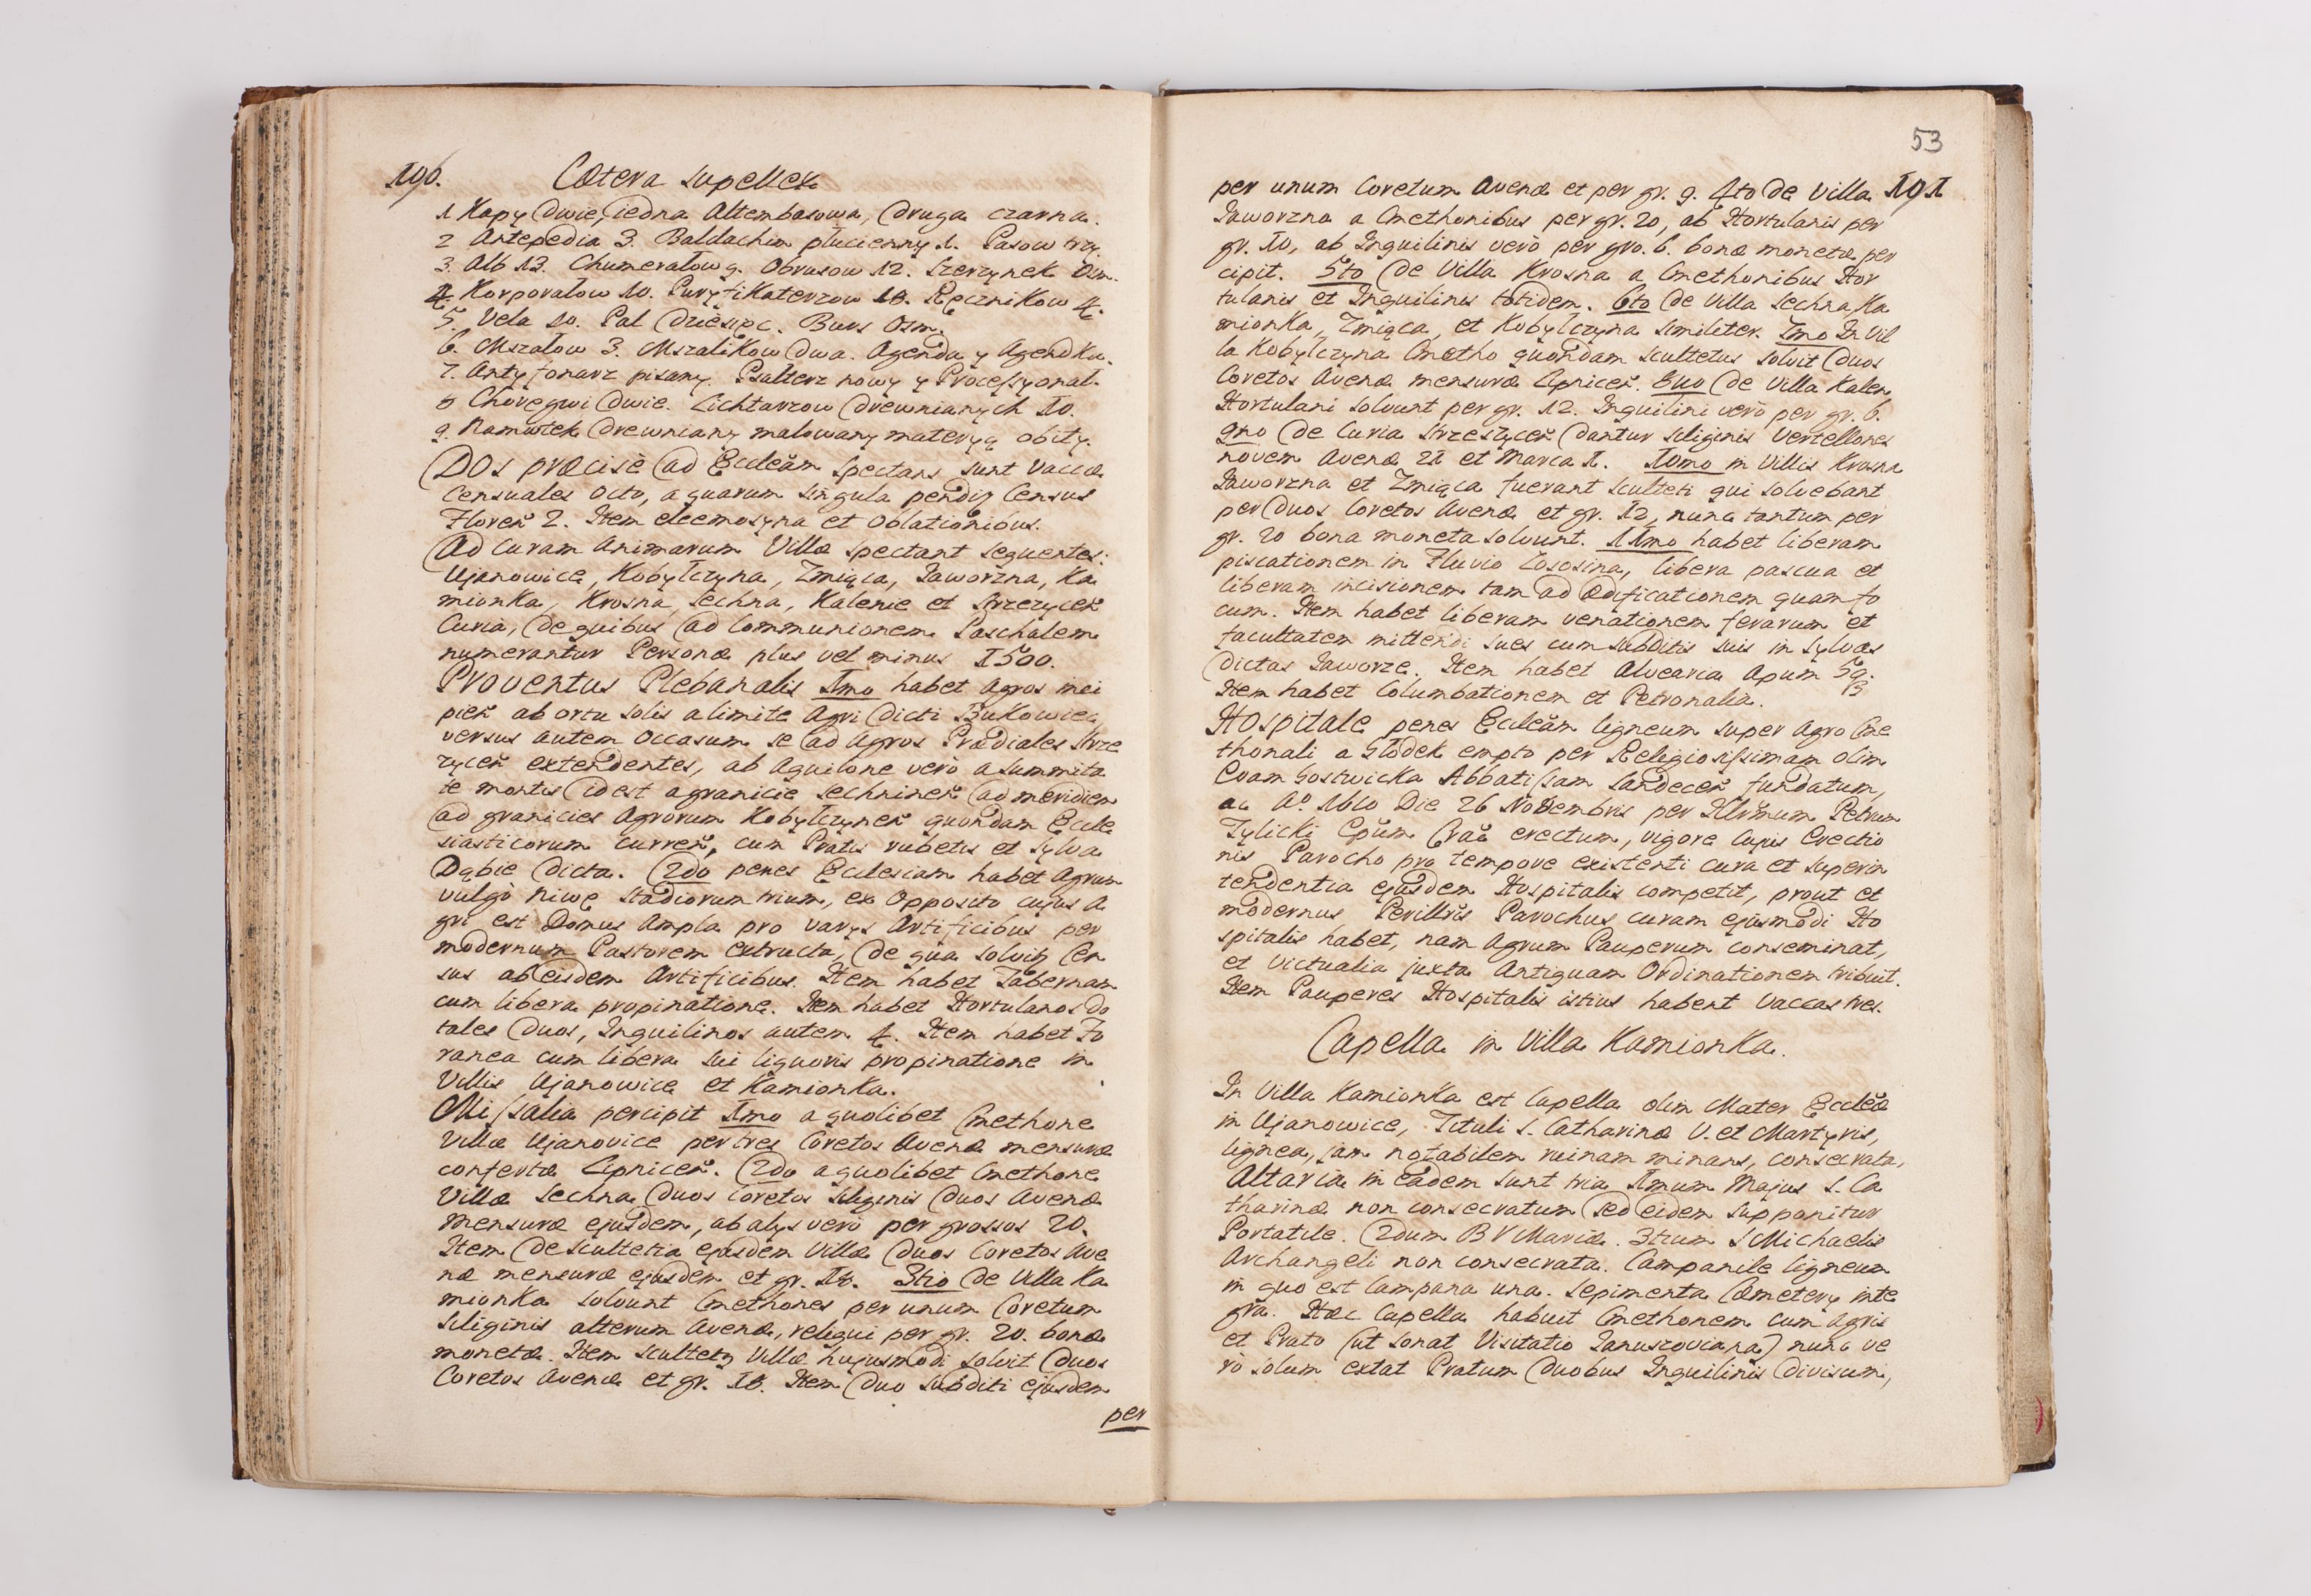 190. Cætera supellex
1 Kapy dwie, iedna Altembasowa, druga czarna.
2 Antepedia 3. Baldachin płucienny 1. Pasow trzy.
3. Alb 13. Chumerałow 9. Obrusow 12. Szerzynek Osm.
4. Korporałow 10. Puryfikaterzow 18. Ręcznikow 4.
5. Vela 10. Pal dziesięc. Burs Osm.
6. Mszałow 3. Mszalikow dwa. Agenda y Agendka.
7. Antyfonarz pisany. Psalterz nowy y Processyonal.
8 Choregwi dwie. Lichtarzow drewnianych 10.
9. Namiotek drewniany malowany materyą obity.
Dos præcisè ad Eccleãm spectans sunt Vaccæ
Censuales Octo, a quarum singula pendit Census
Floreñ 2. Item eleemosyna et Oblationibus.
Ad curam Animarum Villæ spectant sequentes:
Ujanowice, Kobylczyna, Zmiąca, Jaworzna, Ka
mionka, Krosna, Sechna, Kalenie et Strzezyceñ
Curia, de quibus ad Communionem Paschalem
numerantur Personæ plus vel minus 1500.
Proventus Plebanalis 1mo habet Agros inci
pieñ ab ortu solis a limite Agri dicti Bukowiec,
versus autem Occasum se ad Agros Prædiales Strze
zyceñ extendentes, ab Aquilone verò a summita
te montis id est a granicie Sechnineñ ad meridiem
ad granicies Agrorum Kobylczyneñ quondam Eccle
siasticorum curreñ, cum Pratis rubetis et Sylva
Dąbie dicta. 2do penes Ecclesiam habet Agrum
vulgò Niwę stadiorum trium, ex Opposito cujus A
gri est Domus Ampla pro varys Artificibus per
modernum Pastorem extructa, de qua solvit Cen
sus ab eisdem Artificibus. Item habet Tabernam
cum libera propinatione. Item habet Hortulanos do
tales duos, Inquilinos autem 4. Item habet Fo
ranea cum libera sui liquoris propinatione in
Villis Ujanowice et Kamionka.
Missalia percipit 1mo a quolibet Cmethone
Villæ Ujanovice per tres Coretos Avenæ mensuræ
confertæ Lipniceñ. 2do a quolibet Cmethone
Villæ Sechna duos Coretos Siliginis duos Avenæ
mensuræ ejusdem, ab alys verò per grossos 20.
Item de Scultetia ejusdem Villæ duos Coretos Ave
næ mensuræ ejusdem et gr. 18. 3tio de Villa Ka
mionka solvunt Cmethones per unum Coretum
Siliginis alterum Avenæ, reliqui per gr. 20. bonæ
monetæ. Item Scultety Villæ hujusmodi solvit duos
Coretos Avenæ et gr. 18. Item duo subditi ejusdem
per
53
per unum Coretum Avenæ et per gr. 9. 4to de Villa 191
Jaworzna a Cmethonibus per gr. 20, ab Hortulanis per
gr. 10, ab Inquilinis verò per gro. 6. bonæ monetæ per
cipit. 5to de Villa Krosna a Cmethonibus Hor
tulanis et Inquilinis totidem. 6to de Villa Sechna, Ka
mionka, Zmiąca, et Kobylczyna similiter. 7mo In Vil
la Kobylczyna Cmetho quondam Scultetus solvit duos
Coretos Avenæ mensuræ Lipniceñ. 8vo de Villa Kalen,
Hortulani solvunt per gr. 12. Inquilini verò per gr. 6.
9no de Curia Strzeszyceñ dantur Siliginis Vertellones
novem Avenæ 21 et Marca 1. 10mo in Villis Krosna
Jaworzna et Zmiąca fuerant Sculteti qui solvebant
per duos Coretos Avenæ et gr. 12, nunc tantum per
gr. 20 bona moneta solvunt. 11mo habet liberam
piscationem in Fluvio Łososina, libera pascua et
liberam incisionem tam ad ædificationem quam fo
cum. Item habet liberam venationem ferarum et
facultatem mittendi sues cum subditis suis in Sylvas
dictas Jaworze. Item habet Alvearia Apum 59.
Item habet Columbationem et Petronalia.
Hospitale penes Eccleãm ligneum super Agro Cme
thonali a Głodek empto per Religiosissimam olim
Evam Gostwicka Abbatissam Sandeceñ fundatum,
ac Aº 1610 Die 26 Novembris per Illr̃mum Petrum
Tylicki Epũm Crac̃ erectum, vigore cujus Erectio
nis Parocho pro tempore existenti cura et superin
tendentia ejusdem Hospitalis competit, prout et
modernus Perillr̃is Parochus curam ejusmodi Ho
spitalis habet, nam Agrum Pauperum conseminat,
et Victualia juxta Antiquam Ordinationem tribuit.
Item Pauperes Hospitalis istius habent Vaccas tres.
Capella in Villa Kamionka.
In Villa Kamionka est Capella olim Mater Eccleæ
in Ujanowice, Tituli S. Catharinæ V. et Martyris,
lignea, jam notabilem ruinam minans, consecrata,
Altaria in eadem sunt tria 1mum Majus S. Ca
tharinæ non consecratum sed eidem supponitur
Portatile. 2dum B V Mariæ. 3tium S Michaelis
Archangeli non consecrata. Campanile ligneum
in quo est Campana una. Sepimenta Cæmetery inte
gra. Hæc Capella habuit Cmethonem cum Agris
et Prato (ut sonat Visitatio Januszoviana) nunc ve
rò solum extat Pratum duobus Inquilinis divisum,